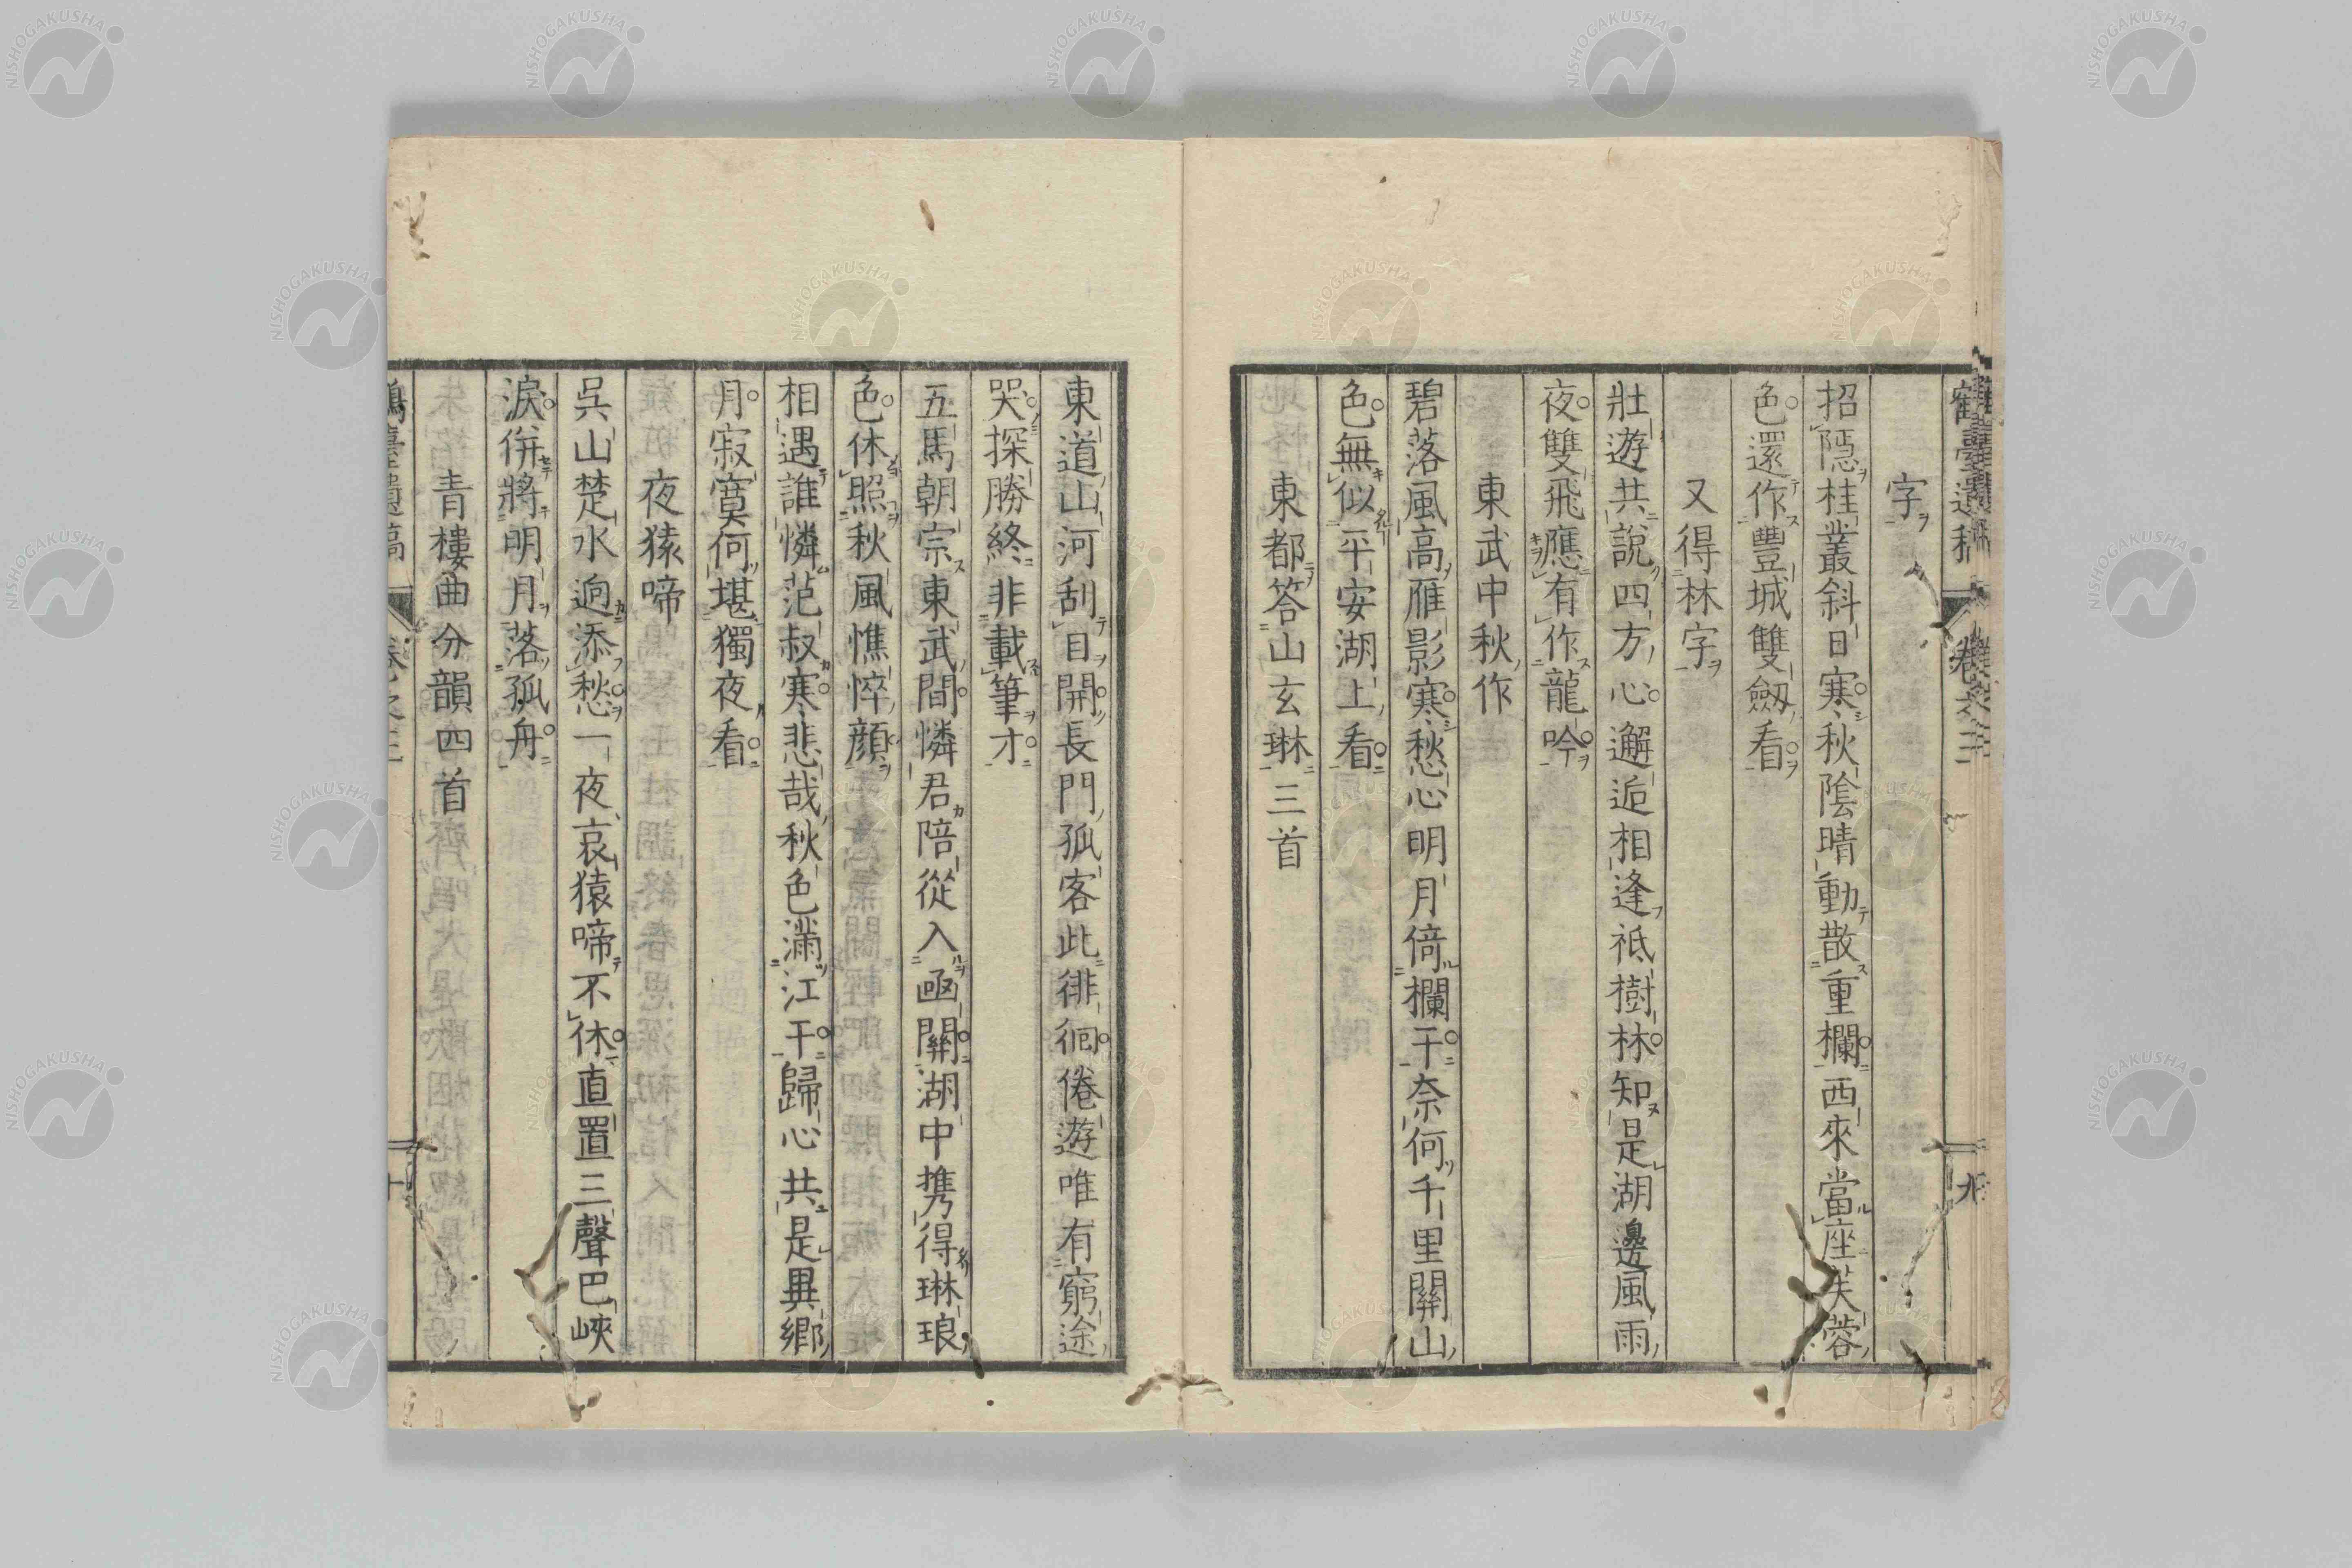 鶴臺遺稿 卷之三 九
字
招隱桂叢斜日寒秋陰晴動散重欄西來當座芙蓉
色還作豐城雙劔看
又得林字
壯遊共說四方心邂逅相逢祗樹林知是湖邊風雨
夜雙飛應有作龍吟
東武中秋作
碧落風高雁影寒愁心明月倚欄干奈何千里關山
色無似平安湖上看
東都答山玄琳三首
東道山河刮目開長門孤客此徘徊倦遊唯有窮途
哭探勝終非載筆才
五馬朝宗東武間憐君陪從入凾關湖中携得琳琅
色休照秋風憔悴顏
相遇誰憐范叔寒悲哉秋色滿江干歸心共是異鄉
月寂寞何堪獨夜看
夜猿啼
吳山楚水逈添愁一夜哀猿啼不休直置三聲巴峽
淚併將明月落孤舟
青樓曲分韻四首
鶴臺遺稿 卷之三 十
NISHOGAKUSHA